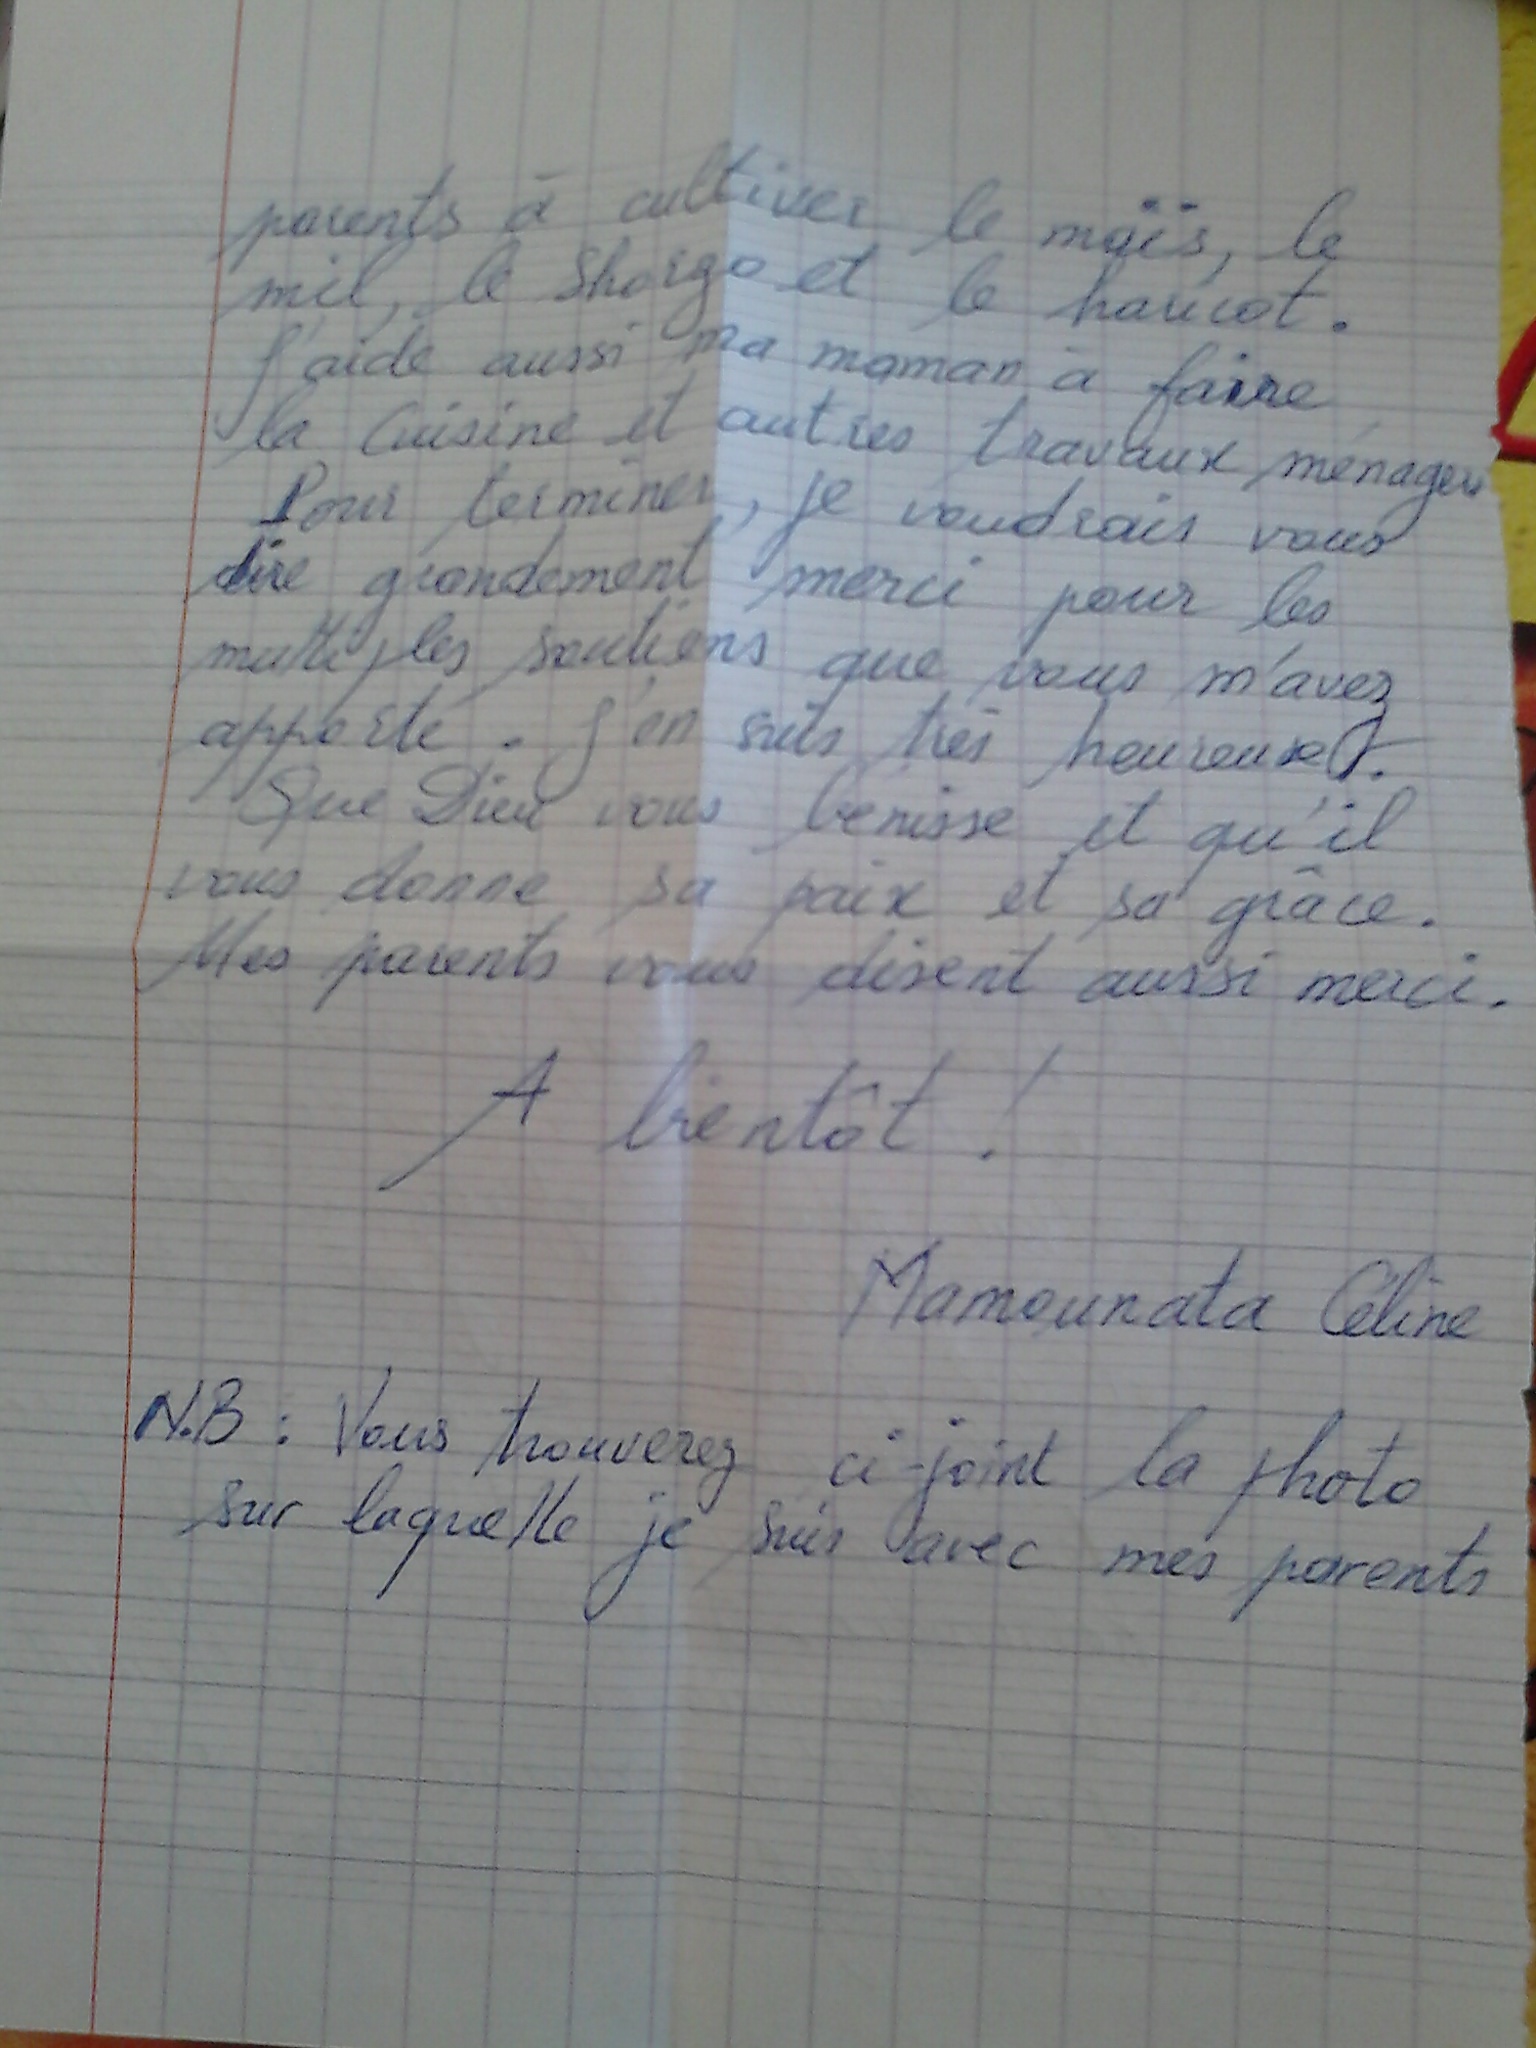 parents à cultiver le maïs, le
mil, le Shorgo et le haricot.
J'aide aussi ma maman à faire
la cuisine et autres travaux ménagers
Pour terminer, je voudrais vous
dire grandement merci pour les
multiples soutiens que vous m'avez
apporté. J'en suis très heureuse.
Que Dieu vous bénisse et qu'il
vous donne sa paix et sa grâce.
Mes parents vous disent aussi merci.
A bientôt !
Mamounata Céline
N.B : Vous trouverez ci-joint la photo
sur laquelle je suis avec mes parents